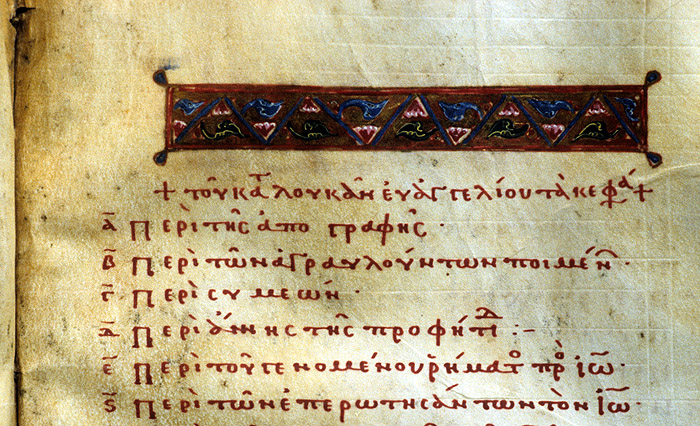 + τοῦ κατ λουκᾶν ἐυαγγελίου τὰ κεφα +
α Περὶ τῆς ἀπογραφῆς ·
β Περὶ τῶν ἀγραυλούντων ποιμέν ·
γ Περὶ συμεών ·
δ Περὶ ἄννης τῆς προφήτιδ :-
ε Περὶ τοῦ γενομένου ῥήματο πρὸ ἰω ·
ς Περὶ τῶν ἐπερωτησάντων τὸν ἰω ·